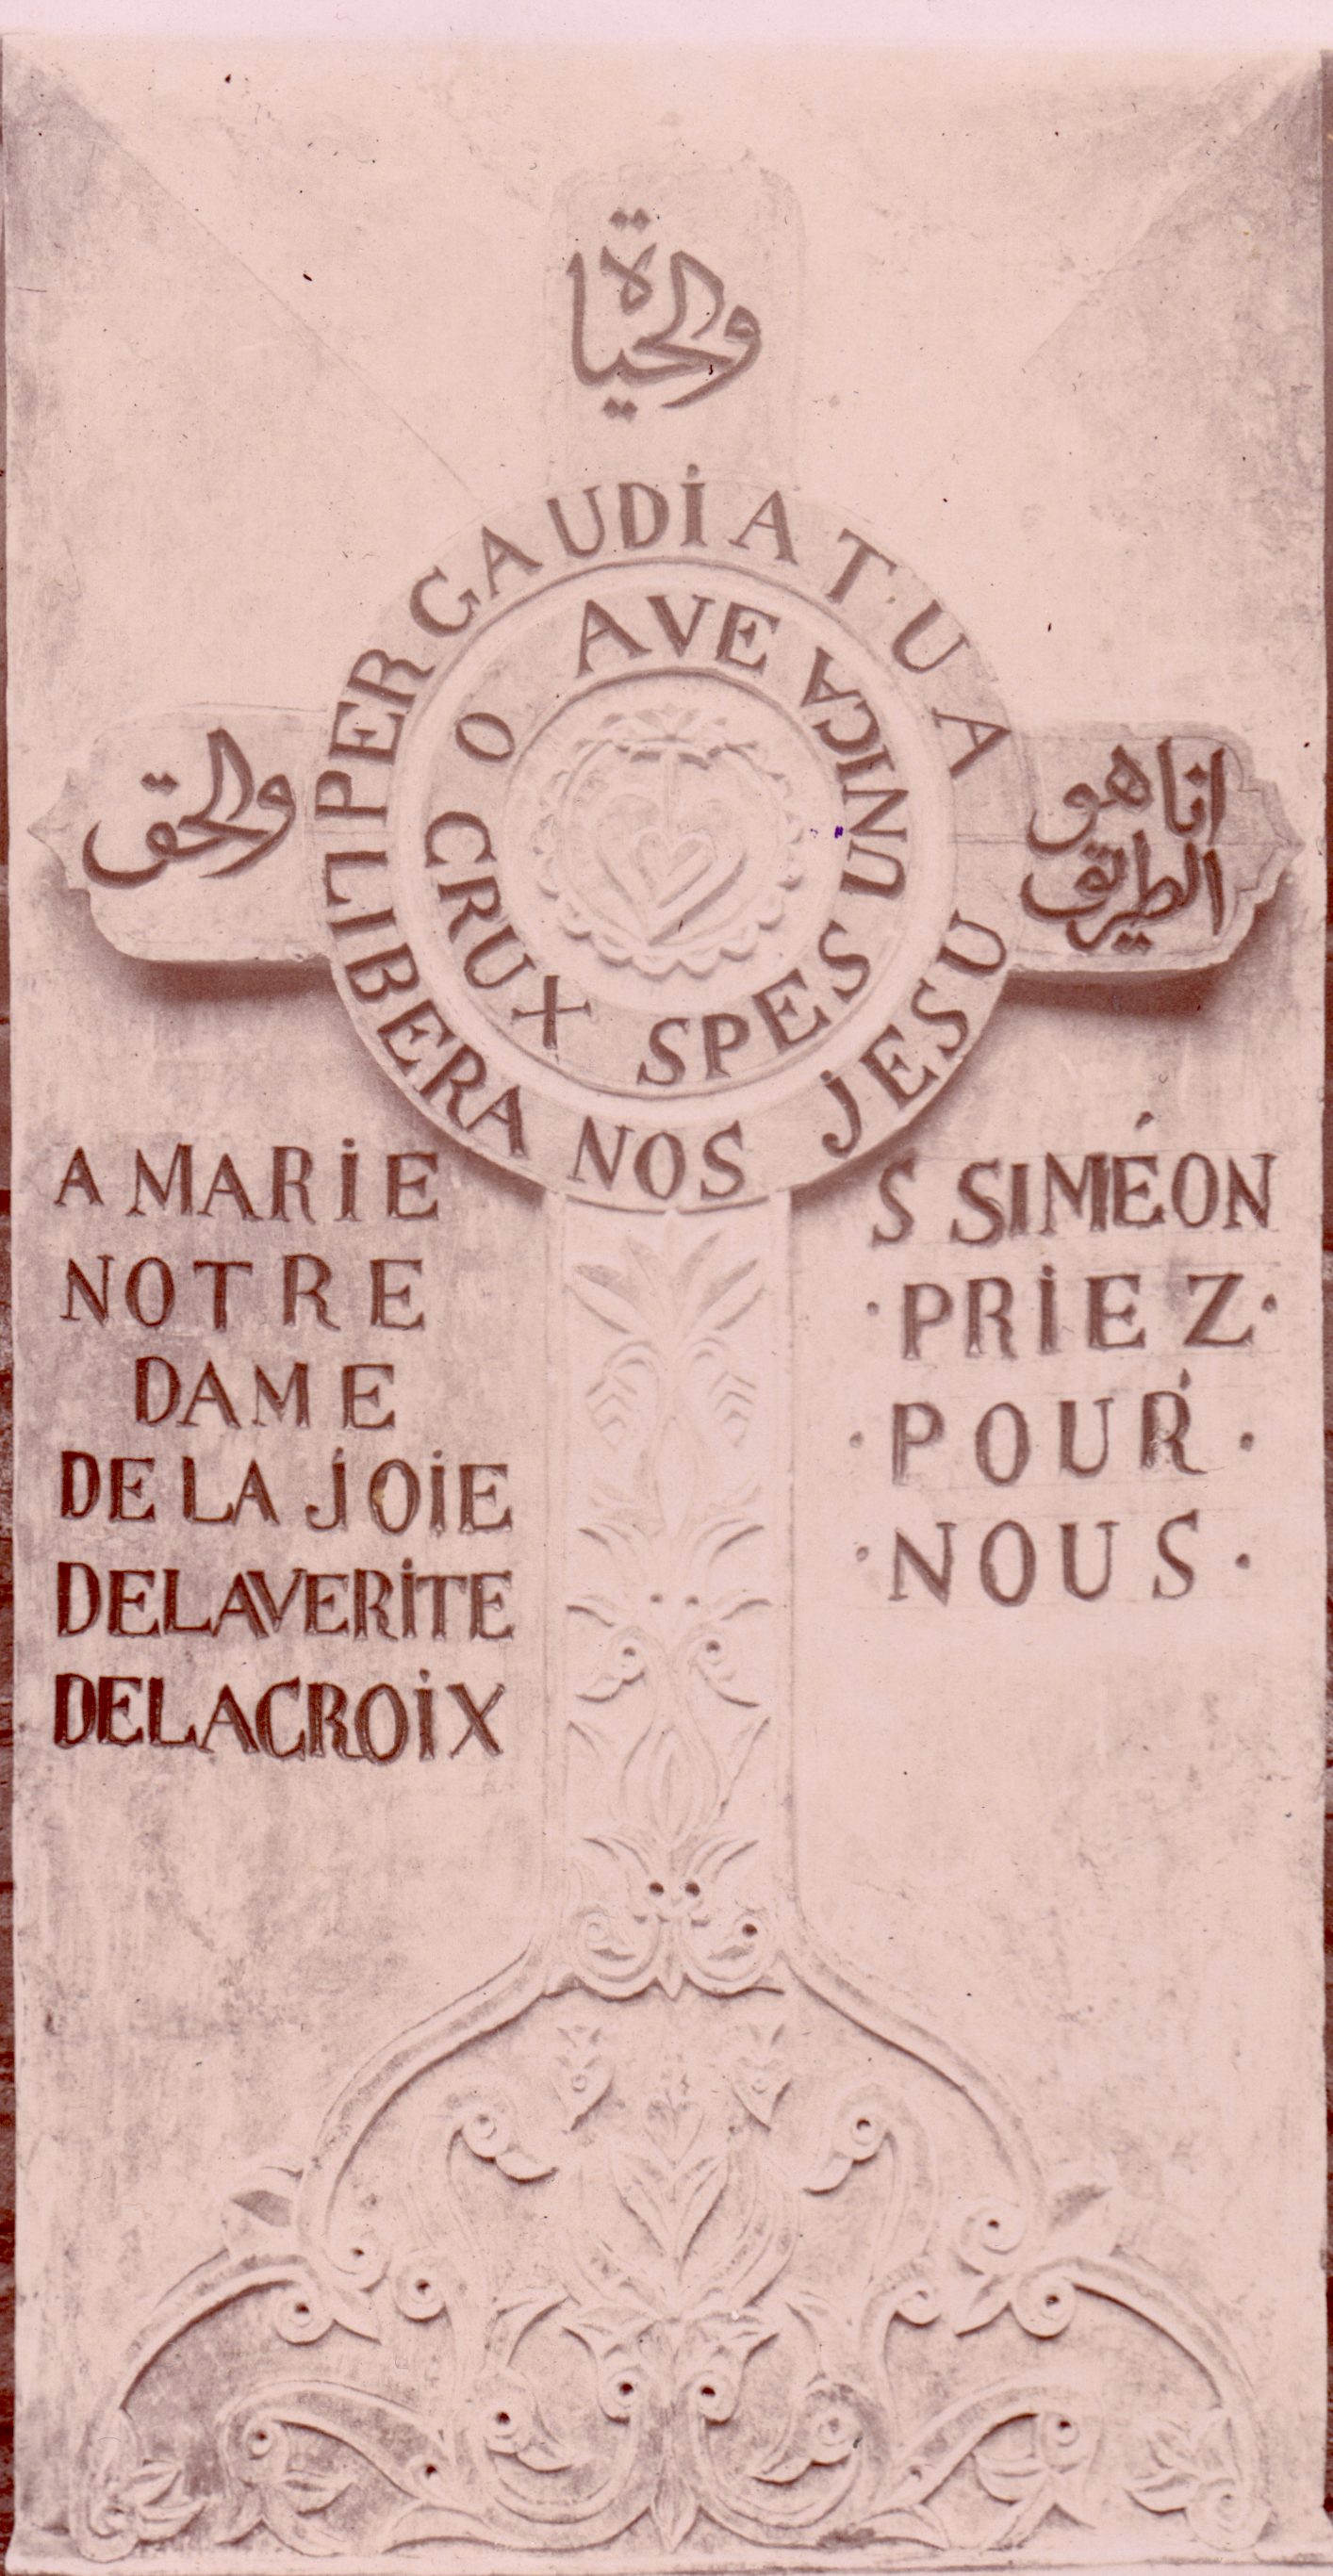 والحياة
PER GAUDIA TUA
LIBERA NOS JESU
O CRUX AVE
SPES UNICA
انا هو
الطريق
والحق
A MARIE
NOTRE
DAME
DE LA JOIE
DE LA VERITE
DE LA CROIX
S SIMÉON
· PRIEZ ·
· POUR ·
· NOUS ·